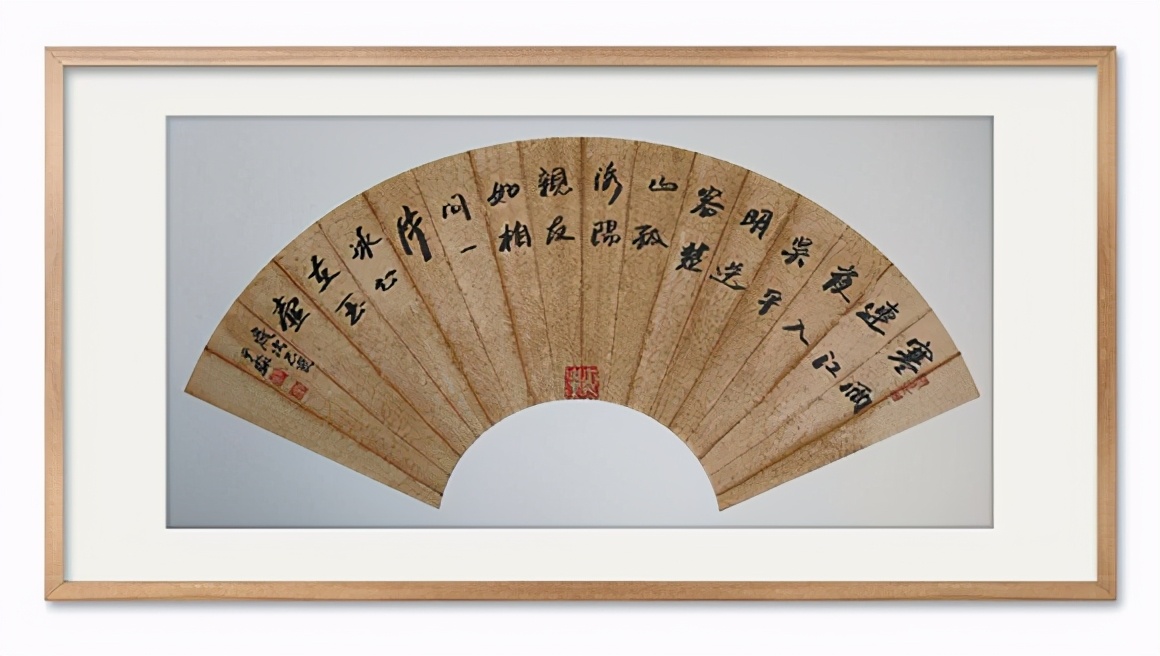 寒雨
連江
夜入
吳平
明送
客楚
山孤
洛陽
親友
如相
問一
片
冰心
在玉
壺
歲次己